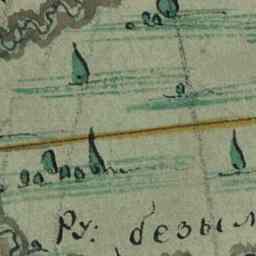 Ру: безыл